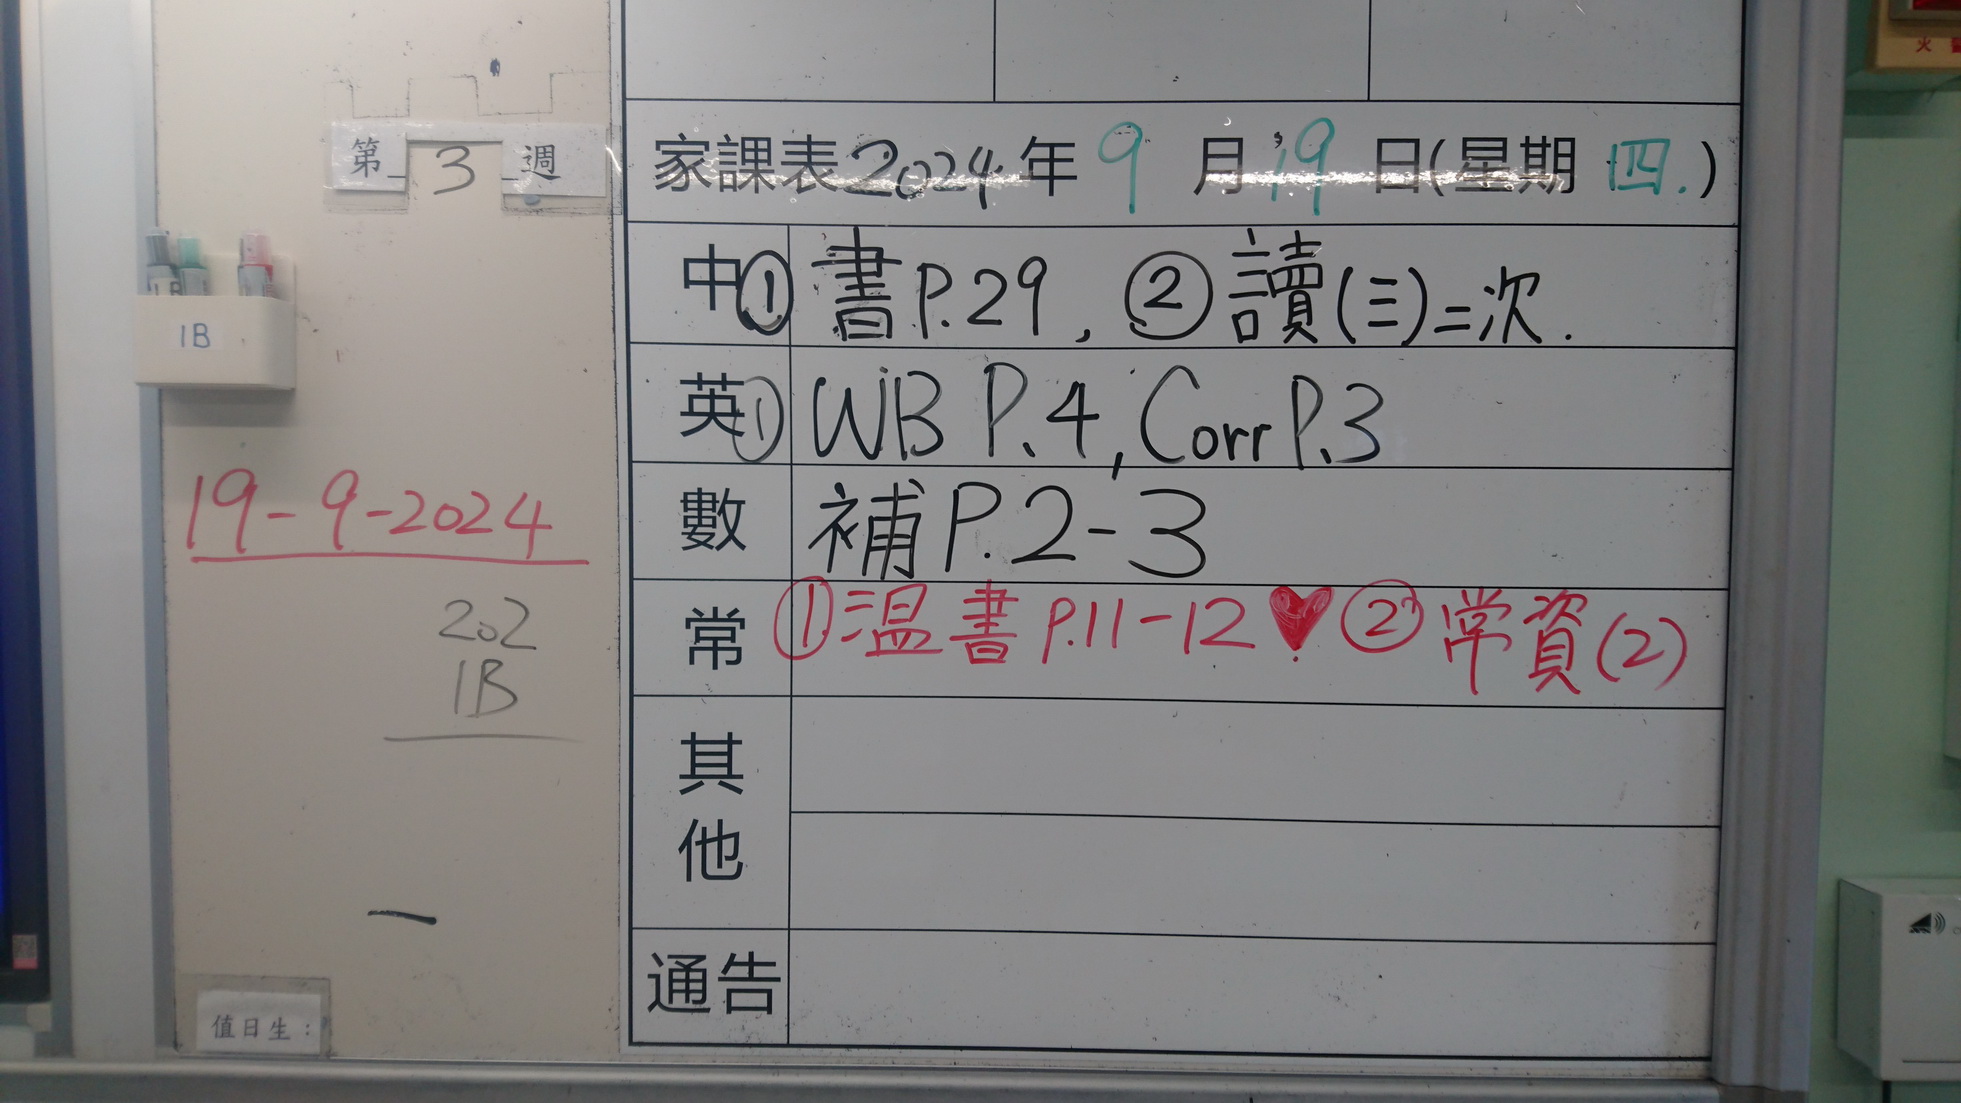 第 3 週
1B
19-9-2024
202
1B
一
值日生：
家課表2024年9月19日(星期四.)
中① 書P.29, ②讀(三)=次.
英① WB P.4, Corr P.3
數 補P.2-3
常 ①温書P.11-12♥②常資(2)
其他
通告
火